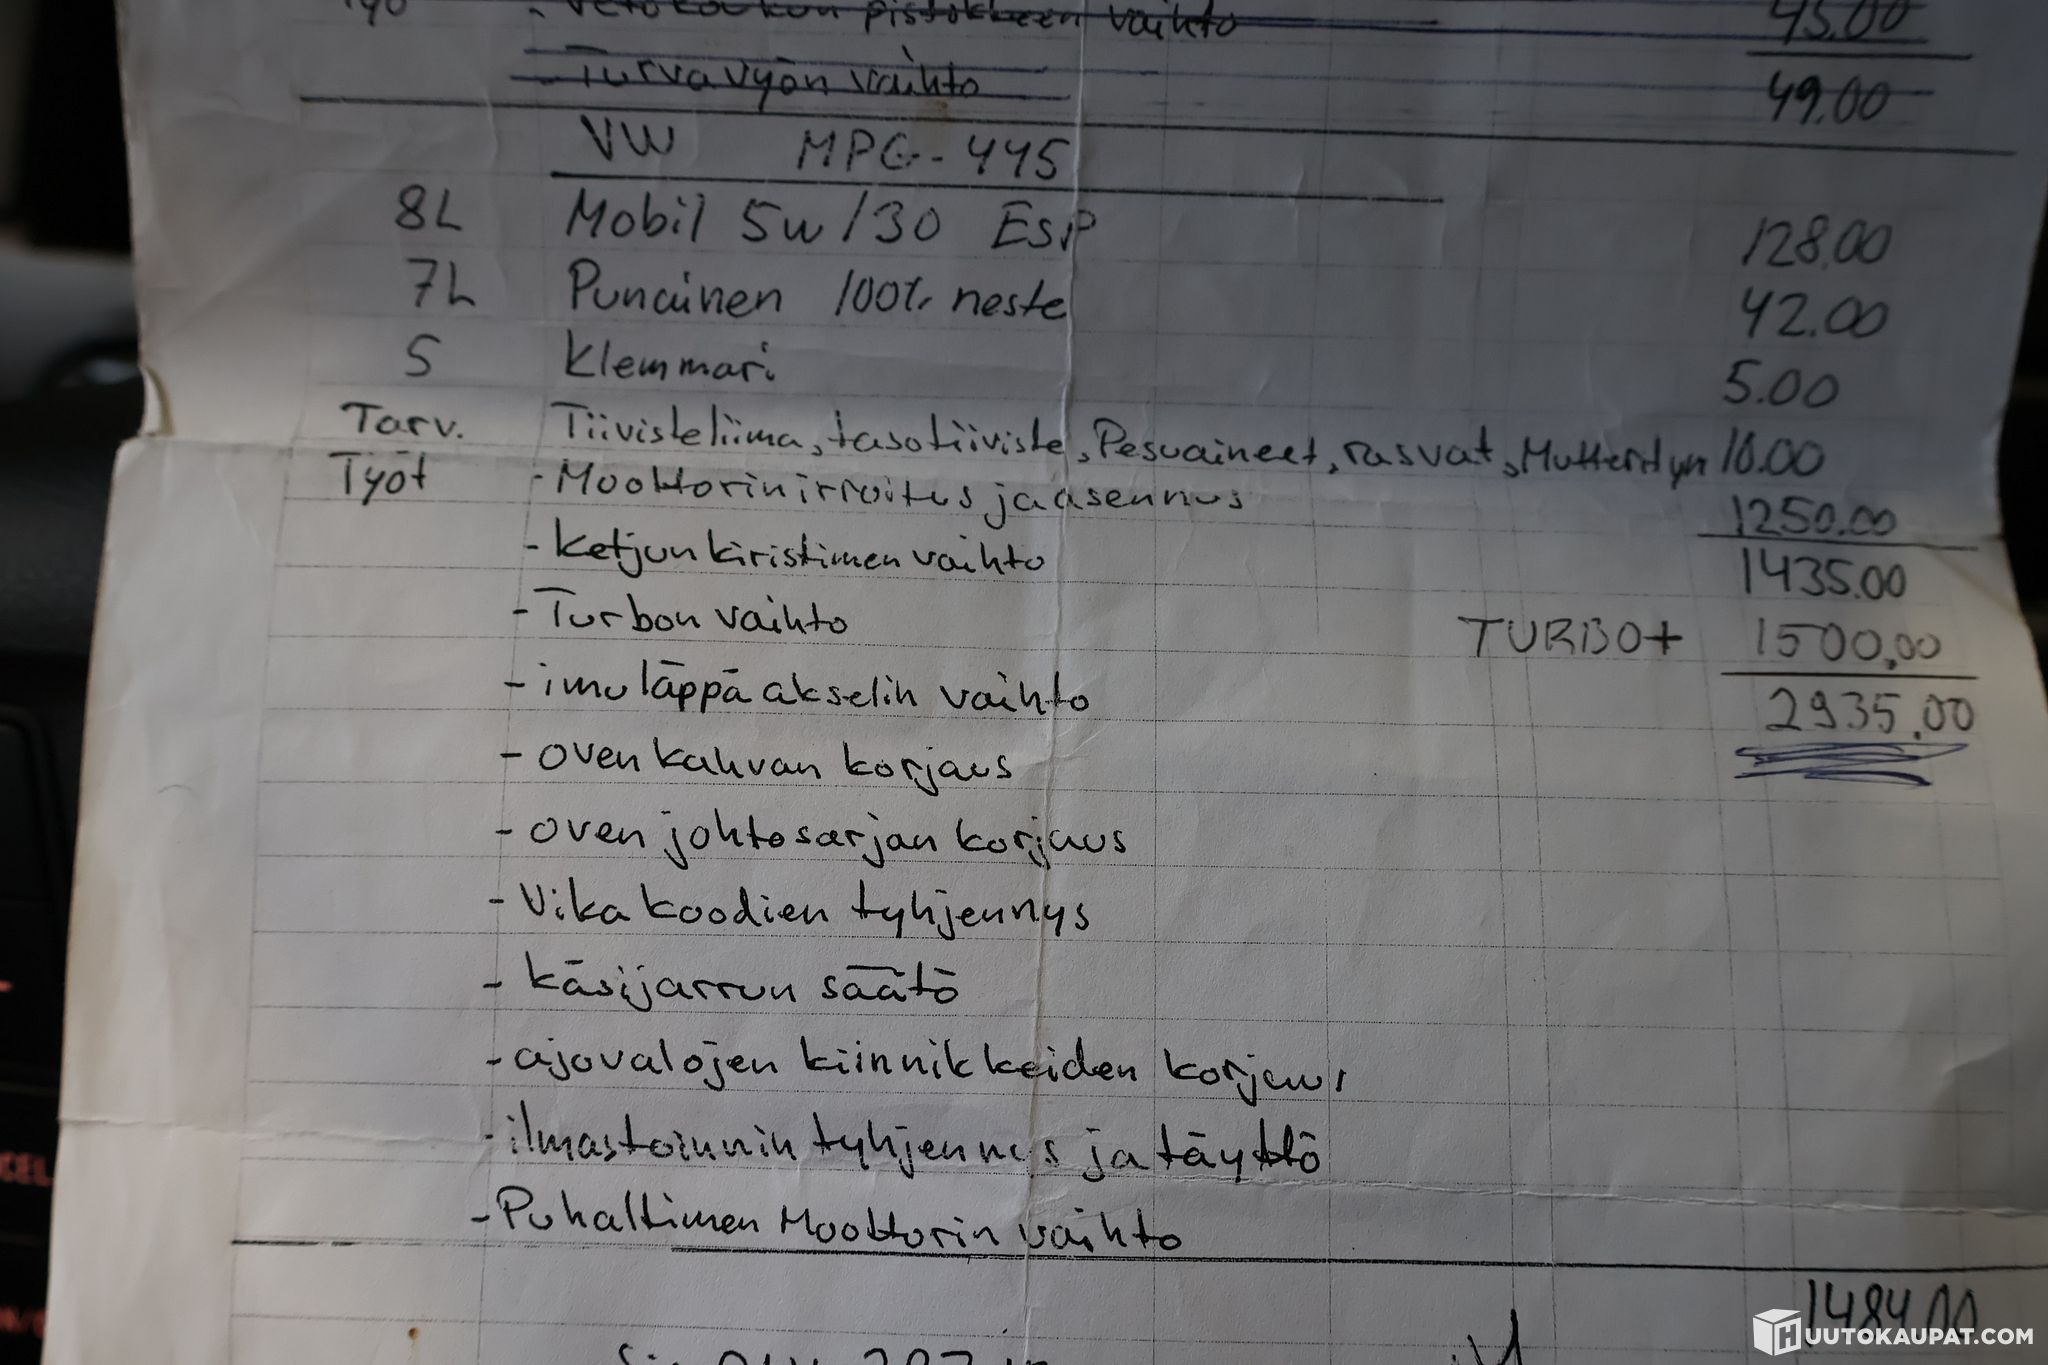 Työ - Vetokoukun pistokkeen vaihto 45.00
Turvavyön vaihto 49.00
VW MPG-445
8L Mobil 5w/30 ESP 128.00
7L Punainen 100% neste 42.00
5 Klemmari 5.00
Tarv. Tiivisteliima, tasotiiviste, Pesuaineet, rasvat, Mutterit ym 10.00
Työt - Moottorin irroitus ja asennus 1250.00
- Ketjun kiristimen vaihto 1435.00
- Turbon vaihto TURBO+ 1500,00
- imuläppä akselin vaihto 2935,00
- oven kahvan korjaus
- oven johtosarjan korjaus
- Vika koodien tyhjennys
- käsijarrun säätö
- ajovalojen kiinnikkeiden korjaus
- ilmastoinnin tyhjennys ja täyttö
- Puhaltimen Moottorin vaihto
1484.00
HUUTOKAUPAT.COM